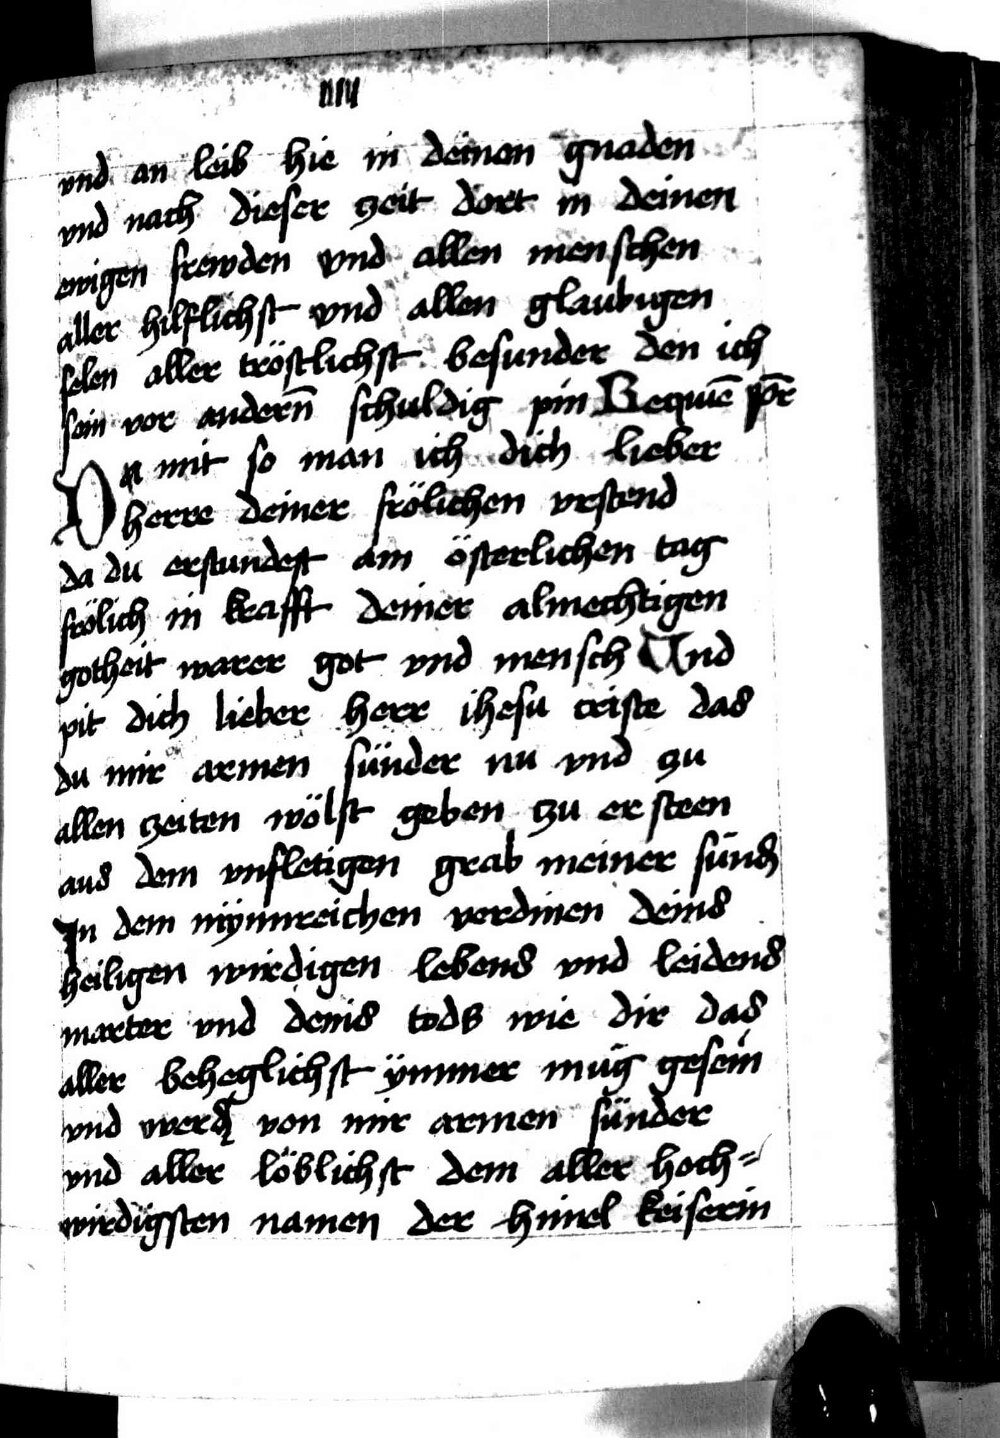 iiii
vnd an leib hie in deinen gnaden
vnd nach dieser zeit dort in deinen
ewigen frewden vnd allen menschen
aller hilflichst vnd allen glaubigen
selen aller tröstlichst besunder den ich
sein vor andern̄ schuldig pin Requiē pr̄
Da mit so man ich dich lieber
herre deiner frölichen vrstend
da du erstundest am österlichen tag
frölich in krafft deiner almechtigen
gotheit warer got vnd mensch Vnd
pit dich lieber herr ihesu criste das
du mir armen sünder nu vnd zu
allen zeiten wölst geben zu ersteen
aus dem vnfletigen grab meiner sünd
In dem mÿnnreichen verdinen deins
heiligen wirdigen lebens vnd leidens
marter vnd deins tods wie dir das
aller beheglichst ÿmmer müg gesein
vnd werd von mir armen sünder
vnd aller löblichst dem aller hoch=
wirdigsten namen der himel keiserin